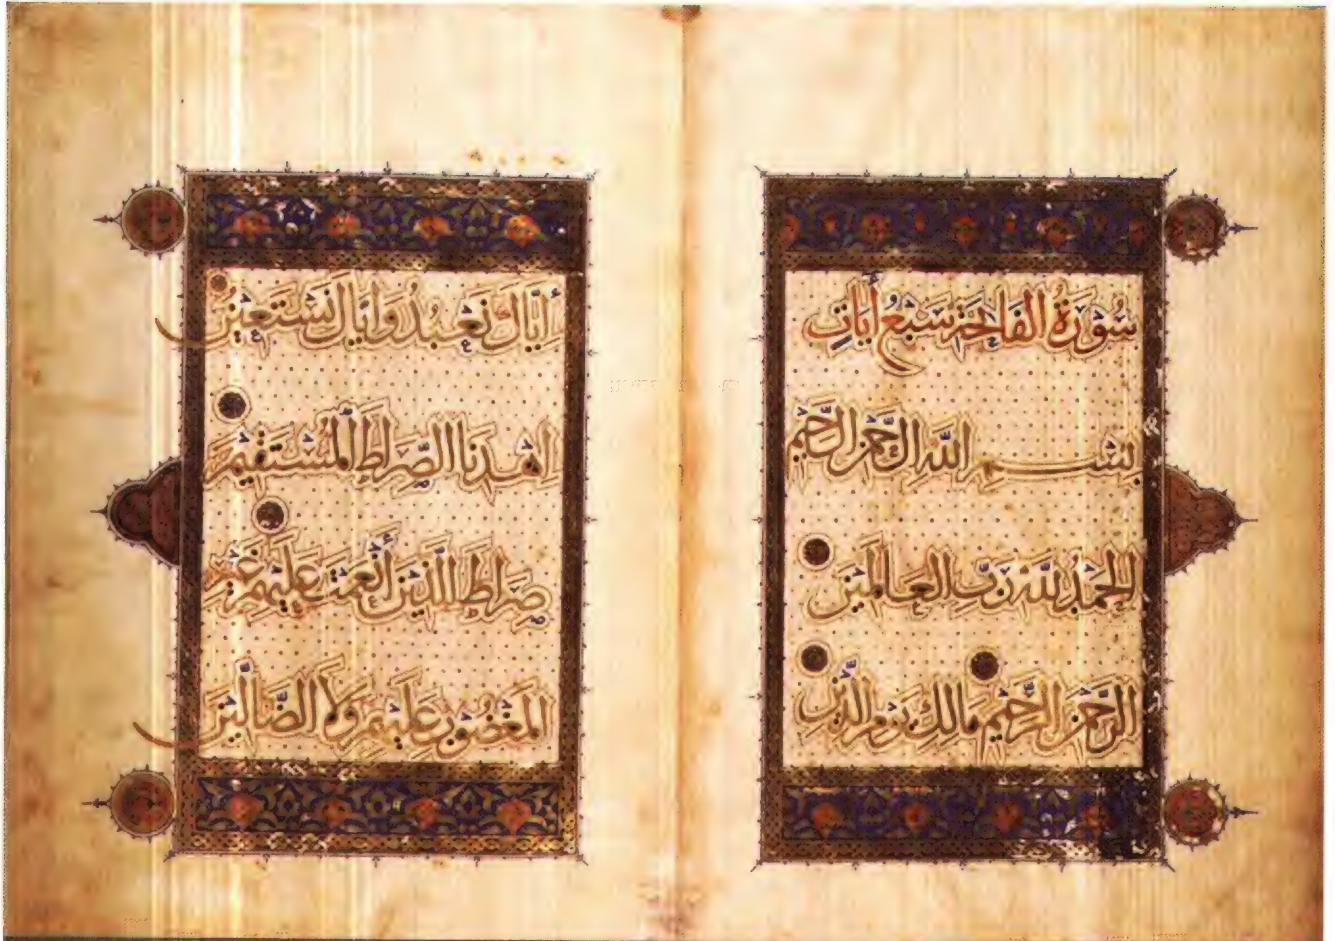 سُورَةُ الفَاتِحَةِ سَبْعُ أَيَاتٍ
بِسْمِ اللَّهِ الرَّحْمَنِ الرَّحِيمِ
الحَمْدُ لِلَّهِ رَبِّ العَالَمِينَ
الرَّحْمَنِ الرَّحِيمِ مَالِكِ يَوْمِ الدِّينِ
أِيَّاكَ نَعْبُدُ وَاِيَّاكَ نَسْتَعِينُ
اِهْدِنَا الصِّرَاطَ الْمُسْتَقِيمَ
صِرَاطَ الَّذِينَ أَنْعَمْتَ عَلَيْهِمْ غَيْرِ
المَغْضُوبِ عَلَيْهِمْ وَلَا الضَّالِّينَ